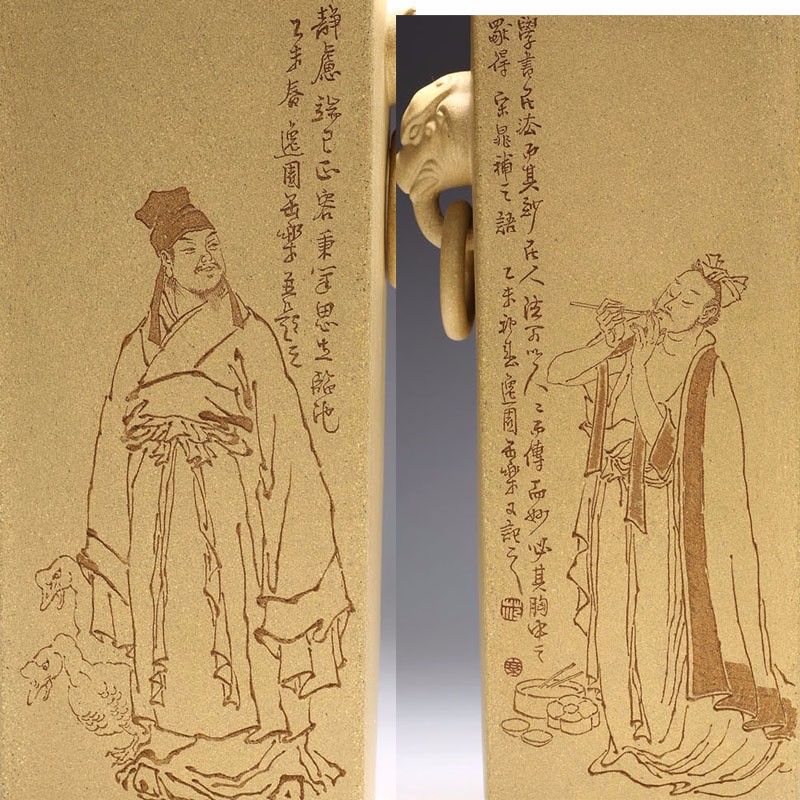 静慮端己正容秉筆思生臨池
乙未春逸園樂並題之
學書在法而其妙在人法可以人人而傳而妙必其胸中之
獨得宋晁補之語乙未初春逸園樂又記之